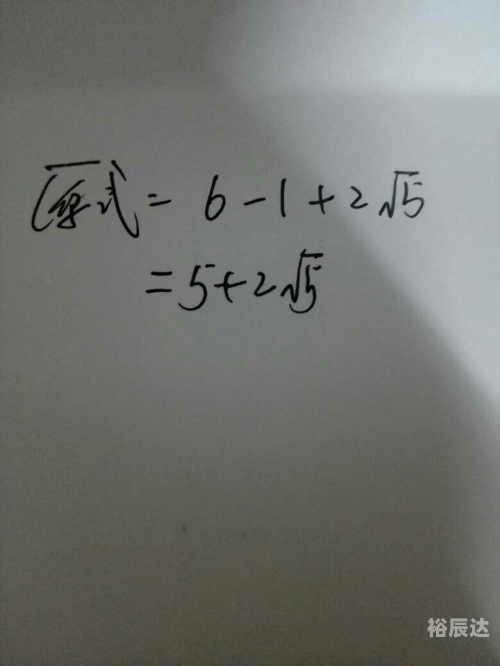 原式 = 6 - 1 + 2√5
= 5 + 2√5
裕辰达